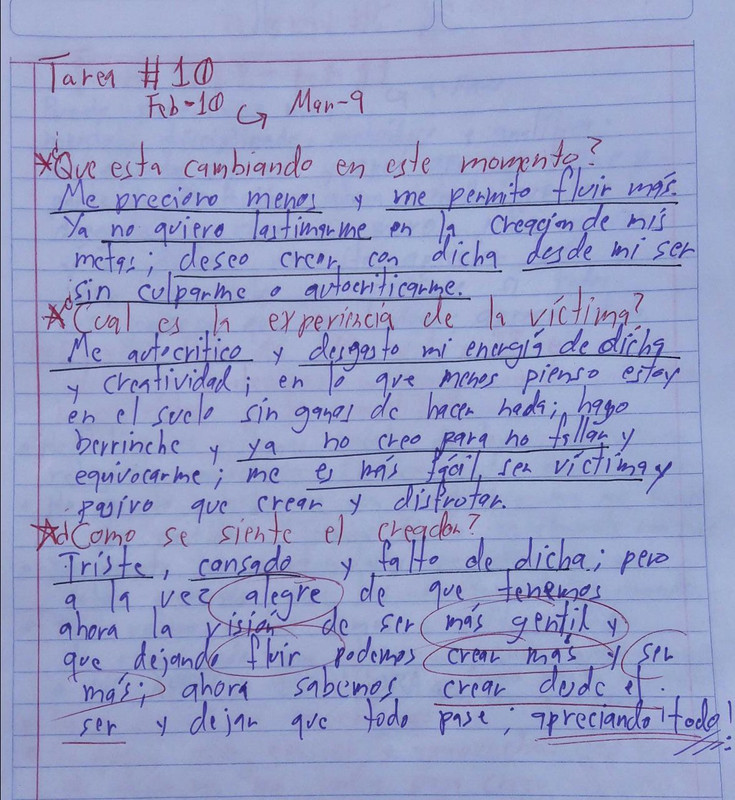 Tarea #10
Feb-10 Mar-9
¿Que esta cambiando en este momento?
Me preciono menos y me permito fluir más.
Ya no quiero lastimarme en la creación de mis
metas; deseo crear con dicha desde mi ser
sin culparme o autocriticarme.
¿Cual es la experiencia de la víctima?
Me autocritico y desgasto mi energía de dicha
y creatividad; en lo que menos pienso estoy
en el suelo sin ganas de hacer nada; hago
berrinche y ya no creo para no fallar y
equivocarme; me es más fácil ser víctima y
pasivo que crear y disfrutar.
¿Como se siente el creador?
Triste, cansado y falto de dicha; pero
a la vez alegre de que tenemos
ahora la visión de ser más gentil y
que dejando fluir podemos crear más y ser
más; ahora sabemos crear desde el
ser y dejar que todo pase; apreciando todo!